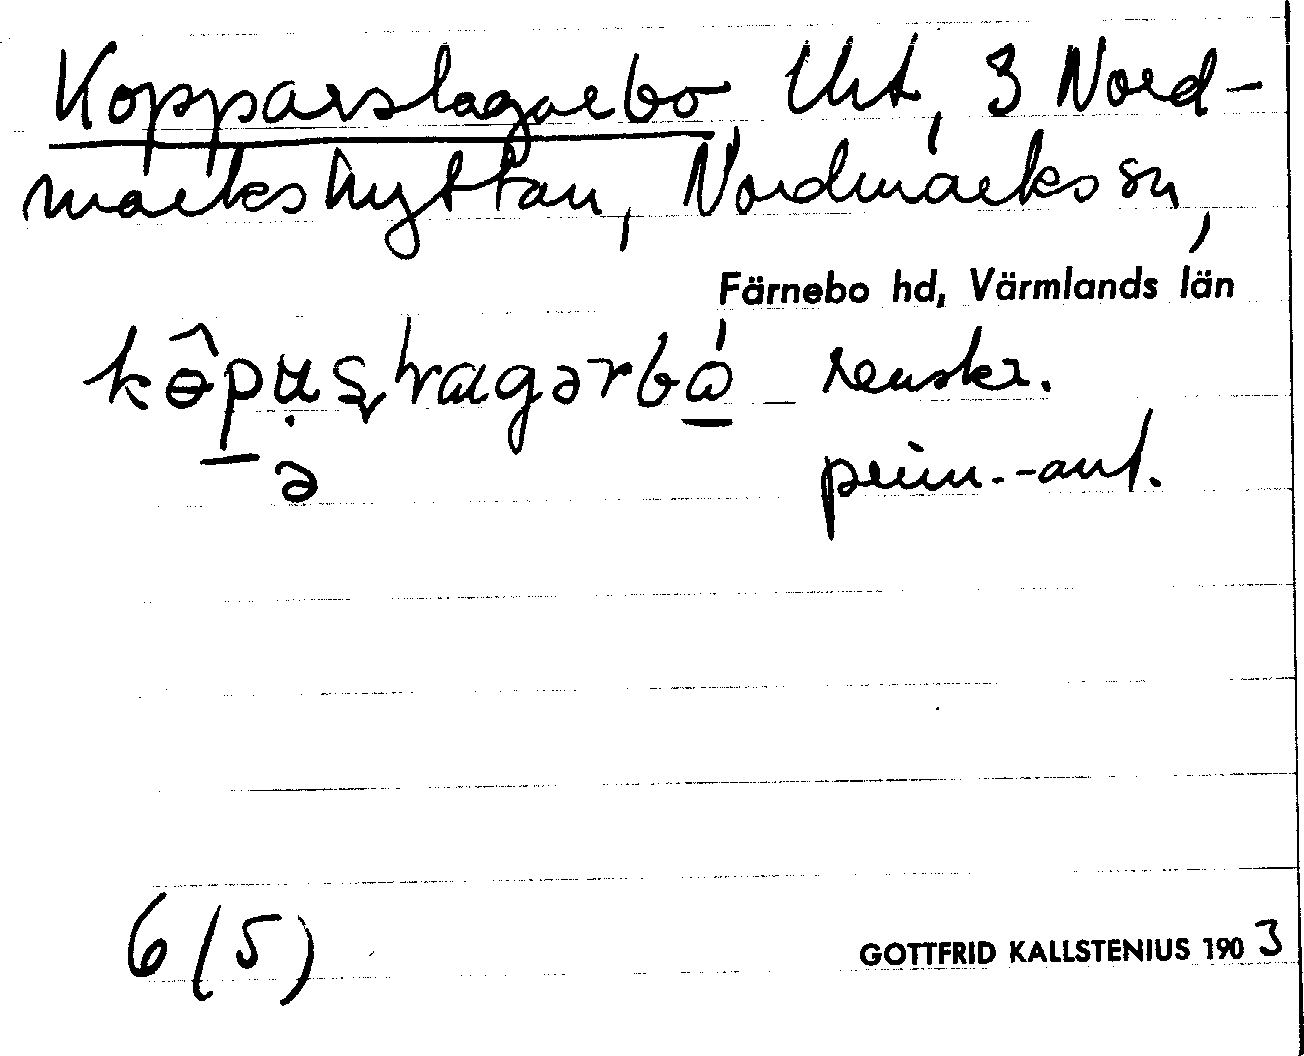 Kopparslagarbo, Uht, 3 Nord-
markshyttan, Nordmarks sn,
Färnebo hd, Värmlands län
renskr.
ə prim.-ant.
6 (5) GOTTFRID KALLSTENIUS 1903